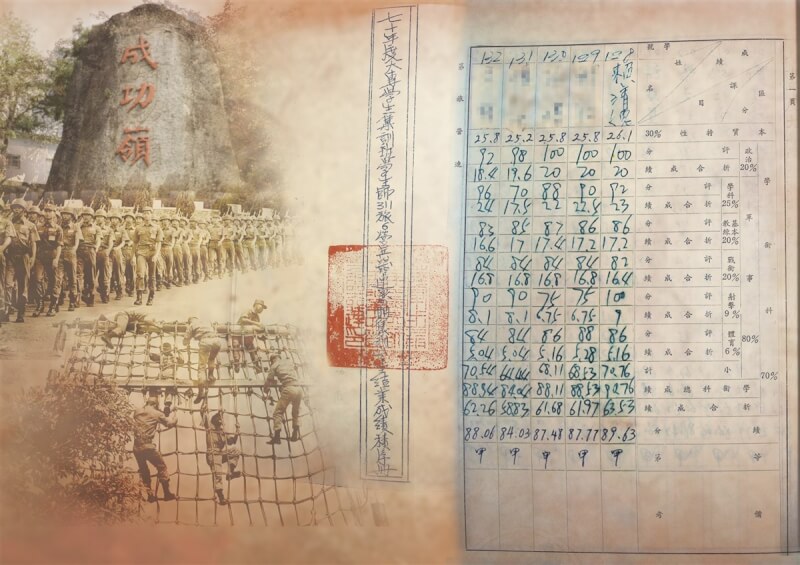 成功嶺
七十年度大專學生集訓
結業成績
第一頁
132 131 130 129 128
賴清德
學號
姓名
成績
課目
區分
本質特性 30% 25.8 25.2 25.8 25.8 26.1
學術科 70%
軍事 80%
政治 20% 評分 92 98 100 100 100
折合成績 18.4 19.6 20 20 20
學科 25% 評分 96 70 88 90 92
折合成績 24 17.5 22 22.5 23
基本教練 20% 評分 83 85 87 86 86
折合成績 16.6 17 17.4 17.2 17.2
戰術 20% 評分 84 84 84 84 82
折合成績 16.8 16.8 16.8 16.8 16.4
射擊 9% 評分 90 90 75 75 100
折合成績 8.1 8.1 6.75 6.75 9
體育 6% 評分 84 84 86 88 86
折合成績 5.04 5.04 5.16 5.28 5.16
小計 70.54 64.44 68.11 68.53 70.76
學術科總成績 88.94 84.04 88.11 88.53 90.76
折合成績 62.26 58.83 61.68 61.97 63.53
績分 88.06 84.03 87.48 87.77 89.63
等第 甲 甲 甲 甲 甲
備考